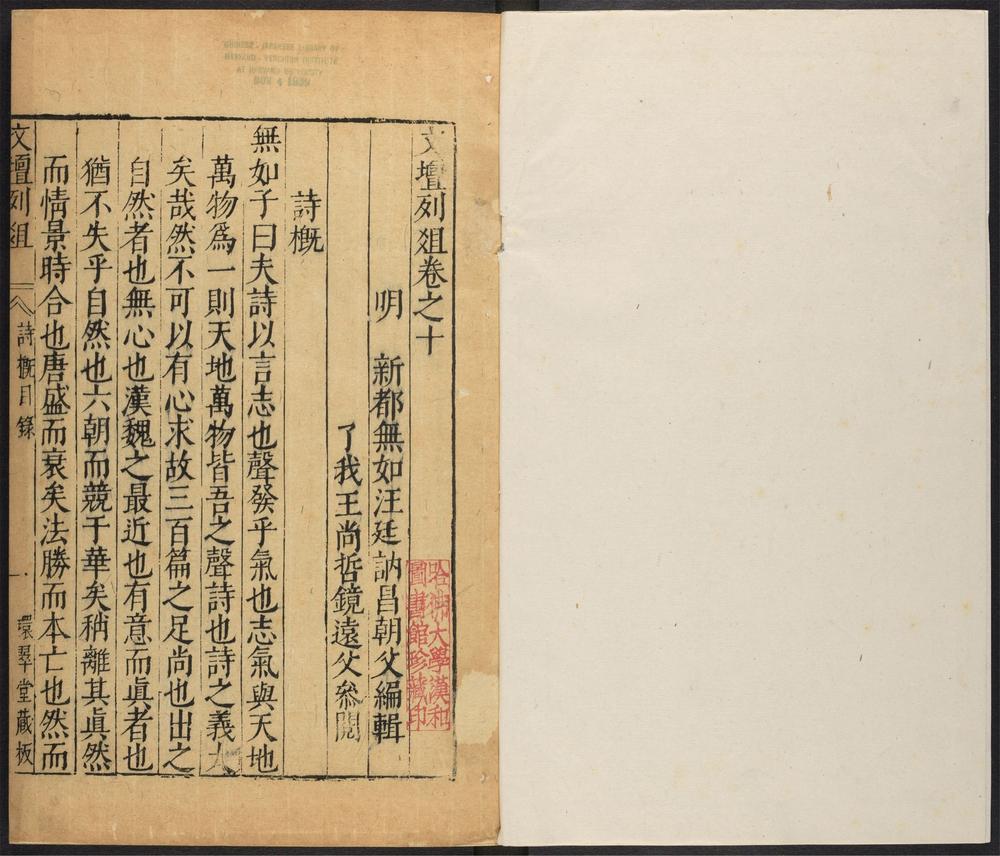 文壇列俎卷之十
明 新都無如汪廷訥昌朝父編輯
了我王尚哲鏡遠父叅閱
詩概
無如子曰夫詩以言志也聲發乎氣也志氣與天地
萬物爲一則天地萬物皆吾之聲詩也詩之義大
矣哉然不可以有心求故三百篇之足尚也出之
自然者也無心也漢魏之最近也有意而眞者也
猶不失乎自然也六朝而競于華矣稍離其眞然
而情景時合也唐盛而衰矣法勝而本亡也然而
文壇列俎 詩概目錄 一 環翠堂藏板
哈佛大學漢和
圖書館珍藏印